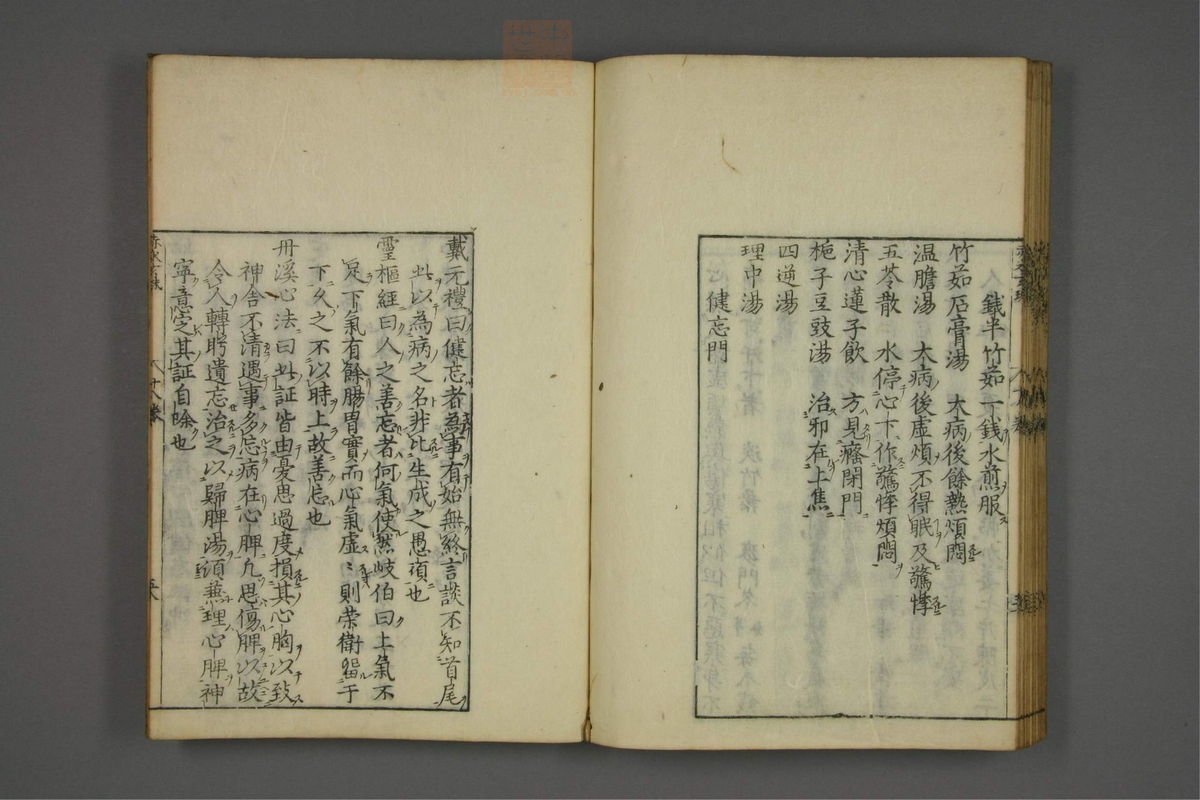 錢半竹茹一錢水煎服
竹茹石膏湯　大病後餘熱煩悶
温膽湯　大病後虛煩不得眠及驚悸
五苓散　水停心下作驚悸煩悶
清心蓮子飲　方見癃閉門
梔子豆豉湯　治邪在上焦
四逆湯
理中湯
健忘門
戴元禮曰健忘者為事有始無終言談不知首尾
此以為病之名非比生成之愚頑也
靈樞經曰人之善忘者何氣使然岐伯曰上氣不
足下氣有餘腸胃實而心氣虛〻則荣衛留于
下久之不以時上故善忘也
丹溪心法曰此証皆由憂思過度損其心胸以致
神舍不清遇事多忘病在心脾凡思傷脾以故
令人轉眄遺忘治之以歸脾湯須兼理心脾神
寧意定其証自除也